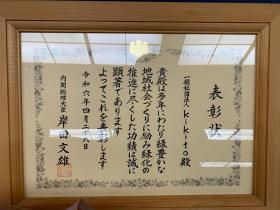 表彰状
一般社団法人 kikito殿
貴殿は多年にわたり緑豊かな
地域社会づくりに励み緑化の
推進に尽くした功績は誠に
顕著であります
よってこれを表彰します
令和六年四月二十六日
内閣総理大臣 岸田文雄